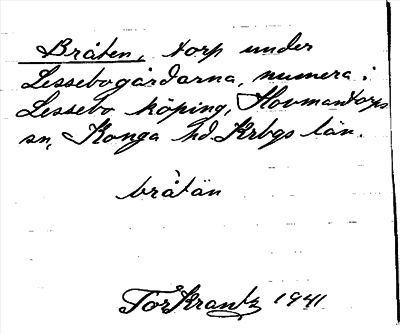 Bråten, torp under
Lessebogårdarna, numera i
Lessebo köping, Hovmantorps
sn, Konga hd Krbgs län.
bråtän
Tor Krantz 1941